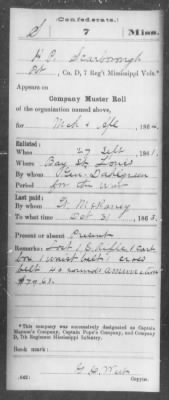 (Confederate.)
S 7 Miss.
H P Scarborough
Pvt, Co. D, 7 Reg't Mississippi Vols.*
Appears on
Company Muster Roll
of the organization named above,
for Mch & Apl, 1864.
Enlisted:
When 27 Sept, 1861.
Where Bay St Louis
By whom Gen Dahlgreen
Period for the War
Last paid:
By whom W McRaney
To what time Oct 31, 1863.
Present or absent Present
Remarks: Lost 1 E. Rifle 1 Cart
box 1 waist belt 1 cross
belt 40 rounds ammunition
*This company was successively designated as Captain
Company, Captain Pope's Company, and Company
D, 7th Regiment Mississippi Infantry.
Book mark:
(642) Copyist.